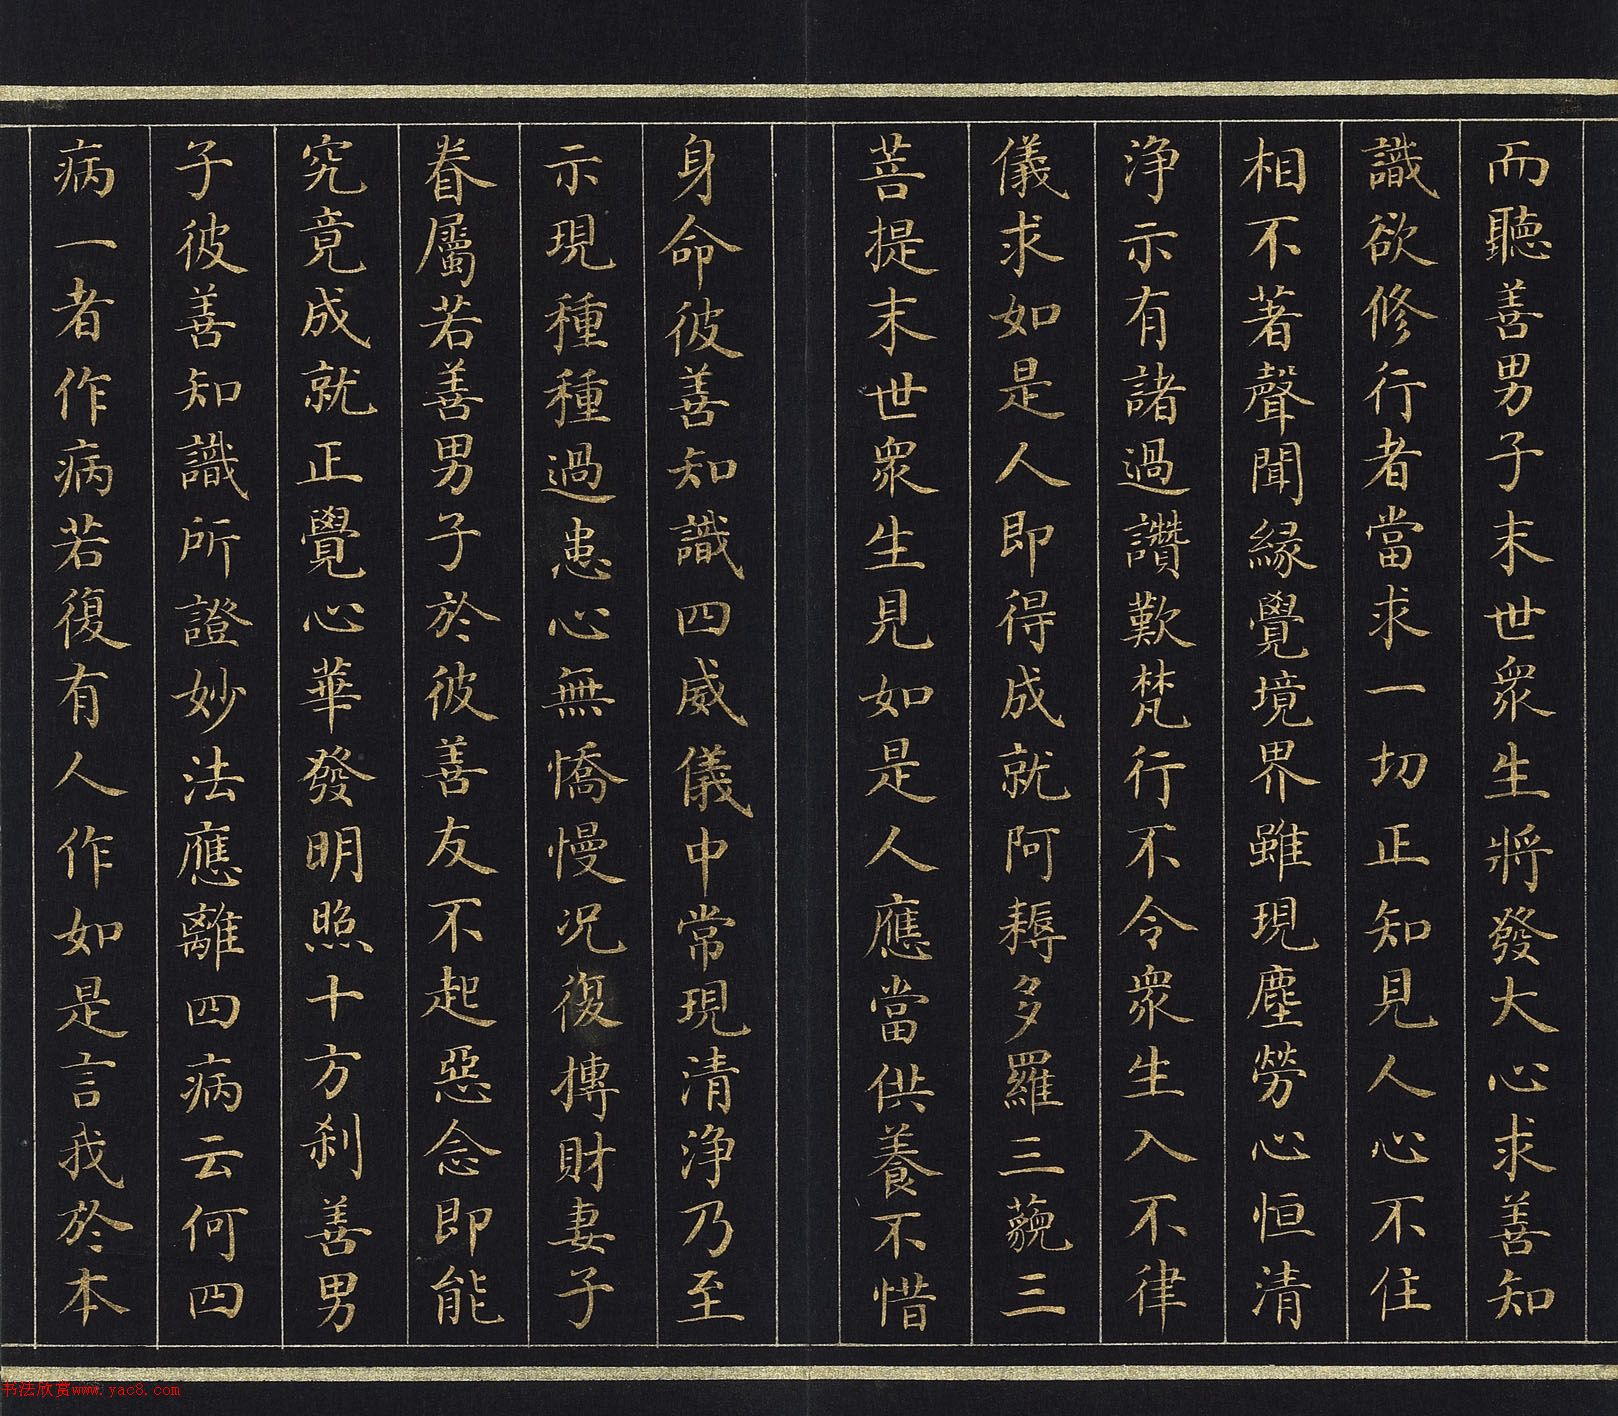 而聽善男子末世衆生將發大心求善知
識欲修行者當求一切正知見人心不住
相不著聲聞緣覺境界雖現塵勞心恒清
淨示有諸過讚歎梵行不令衆生入不律
儀求如是人即得成就阿耨多羅三藐三
菩提末世衆生見如是人應當供養不惜
身命彼善知識四威儀中常現清淨乃至
示現種種過患心無憍慢况復摶財妻子
眷屬若善男子於彼善友不起惡念即能
究竟成就正覺心華發明照十方刹善男
子彼善知識所證妙法應離四病云何四
病一者作病若復有人作如是言我於本
书法欣赏www.yac8.com